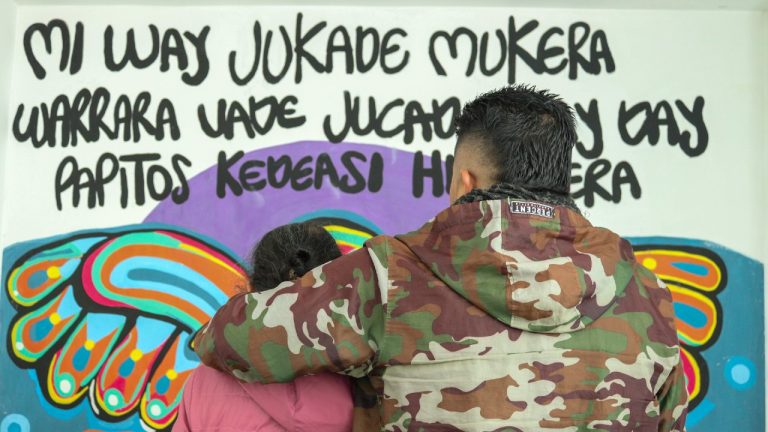 MI WAY JUKADE MUKERA
WARRARA UADE DAY
PAPITOS KEDEASI